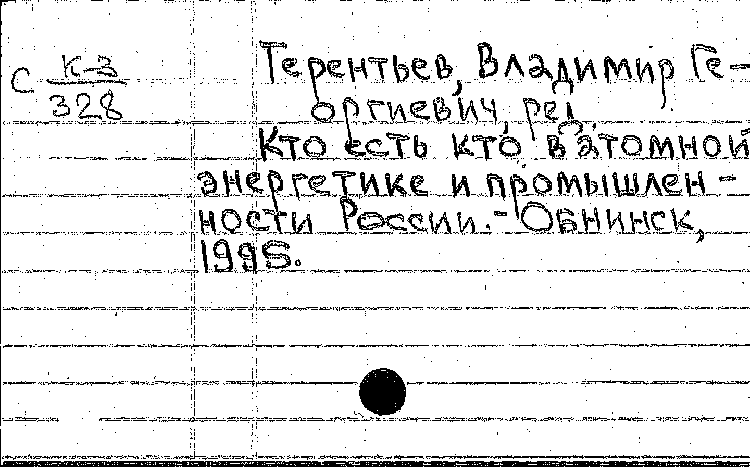 С К-3
328
Терентьев, Владимир Ге-
оргиевич, ред.
Кто есть кто в атомной
энергетике и промышлен-
ности России.- Обнинск,
1995.